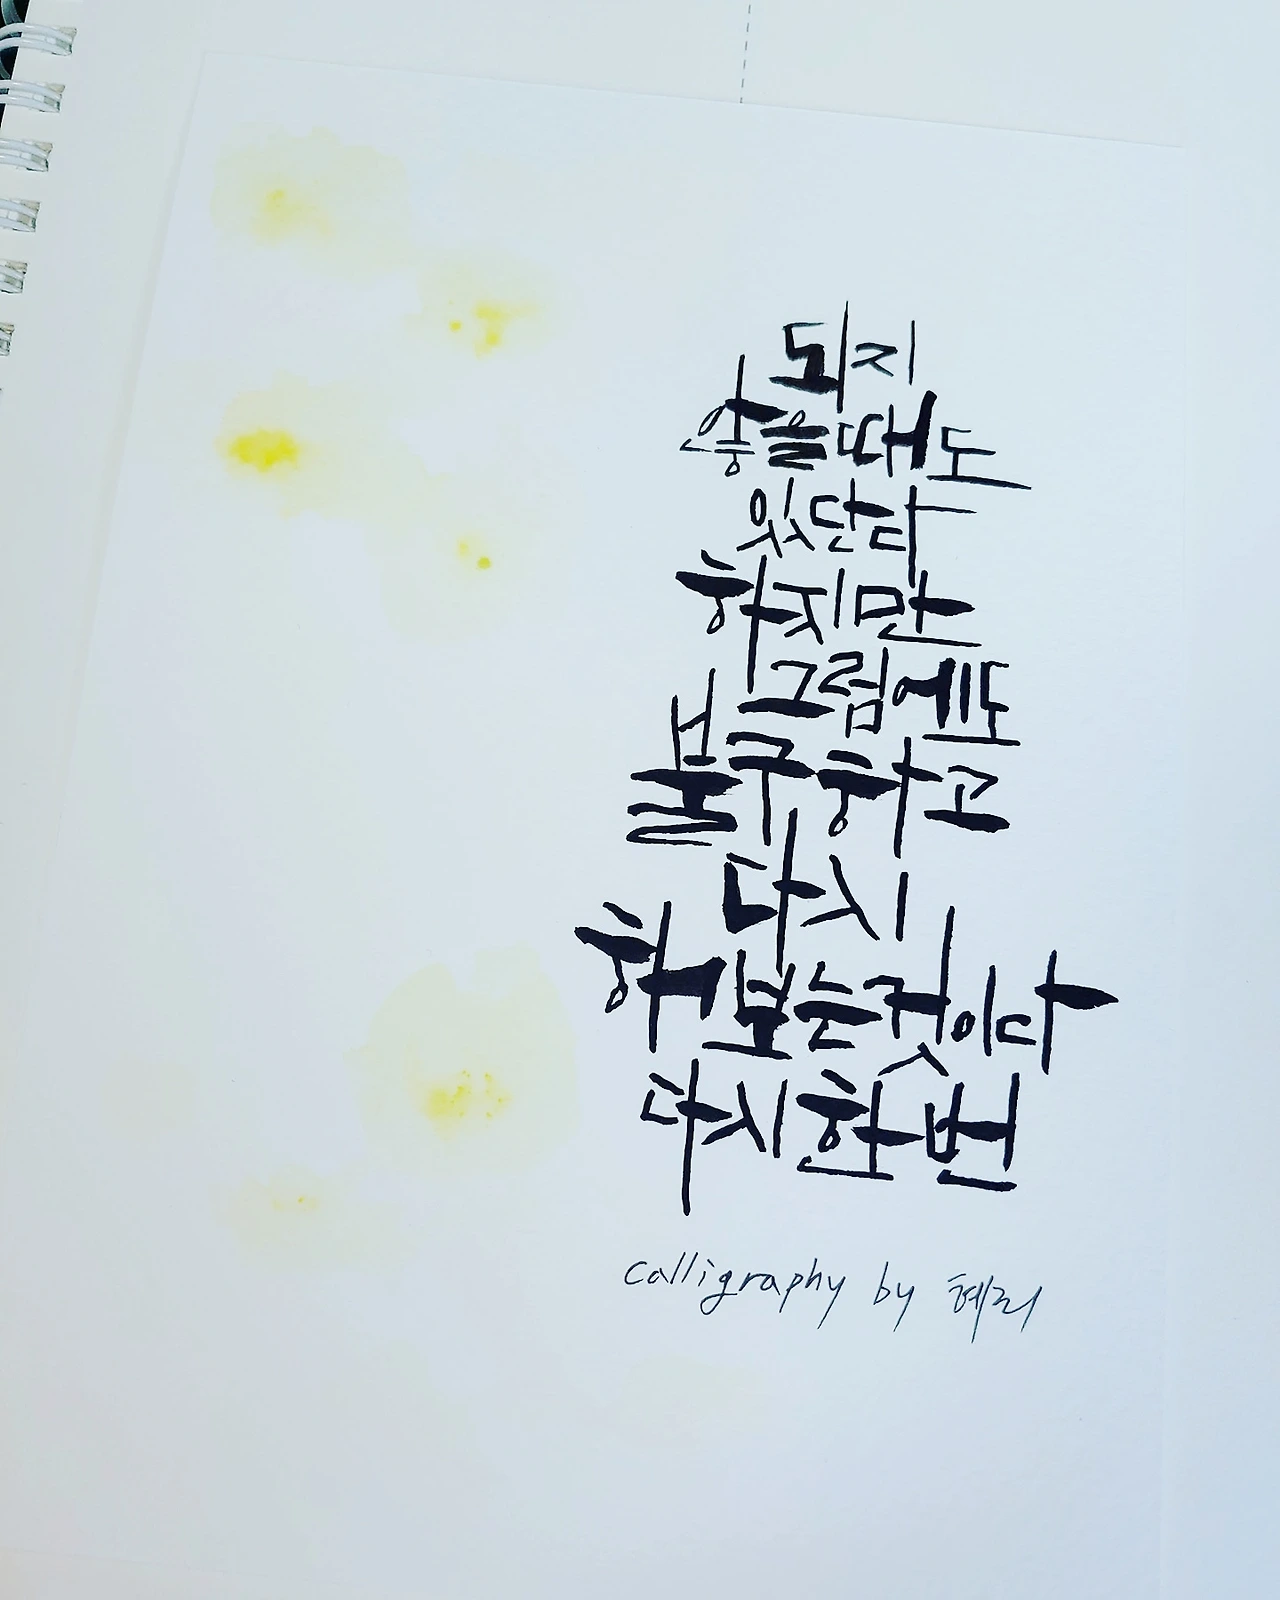 되지
않을때도
있단다
하지만
그럼에도
불구하고
다시
해보는것이다
다시한번
calligraphy by 혜리